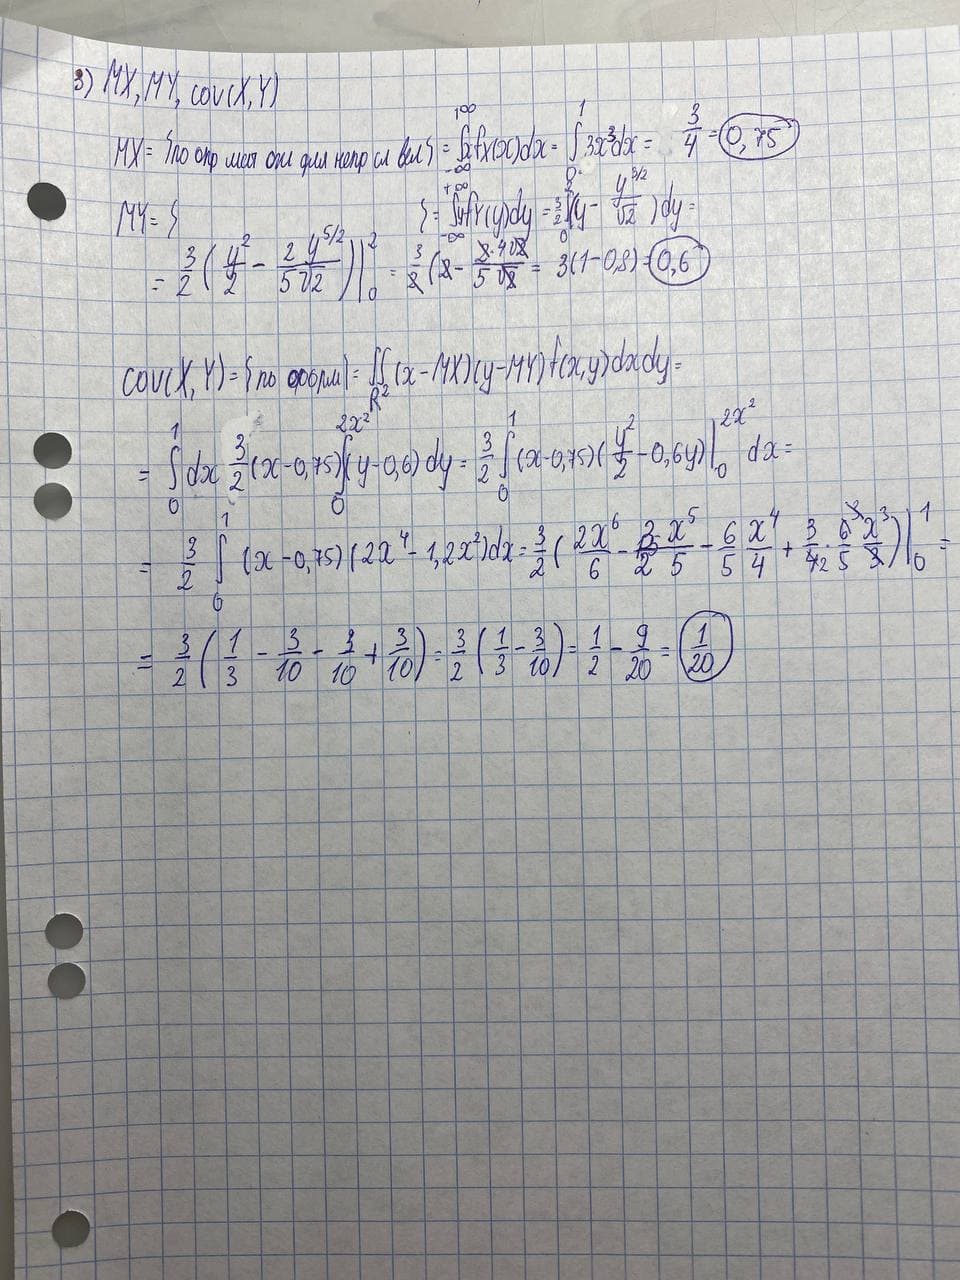 3) MX, MY, cov(X,Y)
MX = {по опр мат ож для непр сл вел} = ∫_{-∞}^{+∞} x f_X(x)dx = ∫_0^1 3x^3 dx = 3/4 = 0,75
MY = { } = ∫_{-∞}^{+∞} y f_Y(y)dy = 3/2 ∫_0^2 (y - y^{3/2}/√2) dy =
= 3/2 (y^2/2 - 2 y^{5/2}/(5√2)) |_0^2 = 3/2 (2 - 2·4√2/(5√2)) = 3(1-0,8) = 0,6
cov(X,Y) = {по форм} = ∬_{R^2} (x-MX)(y-MY) f(x,y)dxdy =
= ∫_0^1 dx 3/2 (x-0,75) ∫_0^{2x^2} (y-0,6) dy = 3/2 ∫_0^1 (x-0,75)(y^2/2 - 0,6y) |_0^{2x^2} dx =
= 3/2 ∫_0^1 (x-0,75)(2x^4 - 1,2x^2)dx = 3/2 (2x^6/6 - 3/2 x^5/5 - 6/5 x^4/4 + 3/4 · 6/5 x^3/3) |_0^1 =
= 3/2 (1/3 - 3/10 - 3/10 + 3/10) = 3/2 (1/3 - 3/10) = 1/2 - 9/20 = 1/20